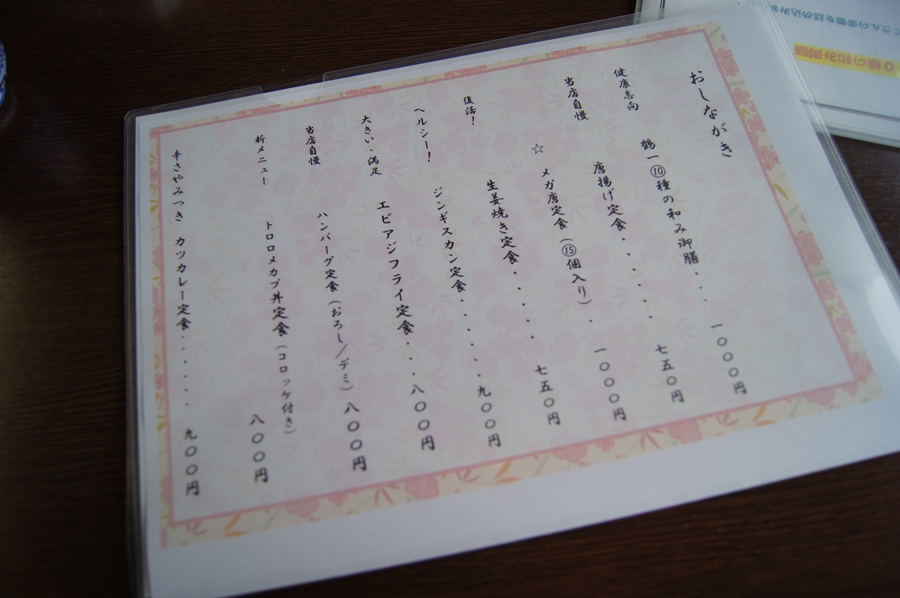 おしながき
健康志向 鶴一⑩種の和み御膳．．．一〇〇〇円
当店自慢 唐揚げ定食．．．．．七五〇円
☆メガ唐定食（⑮個入り）．一〇〇〇円
復活！ 生姜焼き定食．．．．七五〇円
ヘルシー！ ジンギスカン定食．．．．．九〇〇円
大きい・満足 エビアジフライ定食．．．八〇〇円
当店自慢 ハンバーグ定食（おろし／デミ）八〇〇円
新メニュー トロロメカブ丼定食（コロッケ付き）八〇〇円
辛さやみつき カツカレー定食．．．．．．九〇〇円